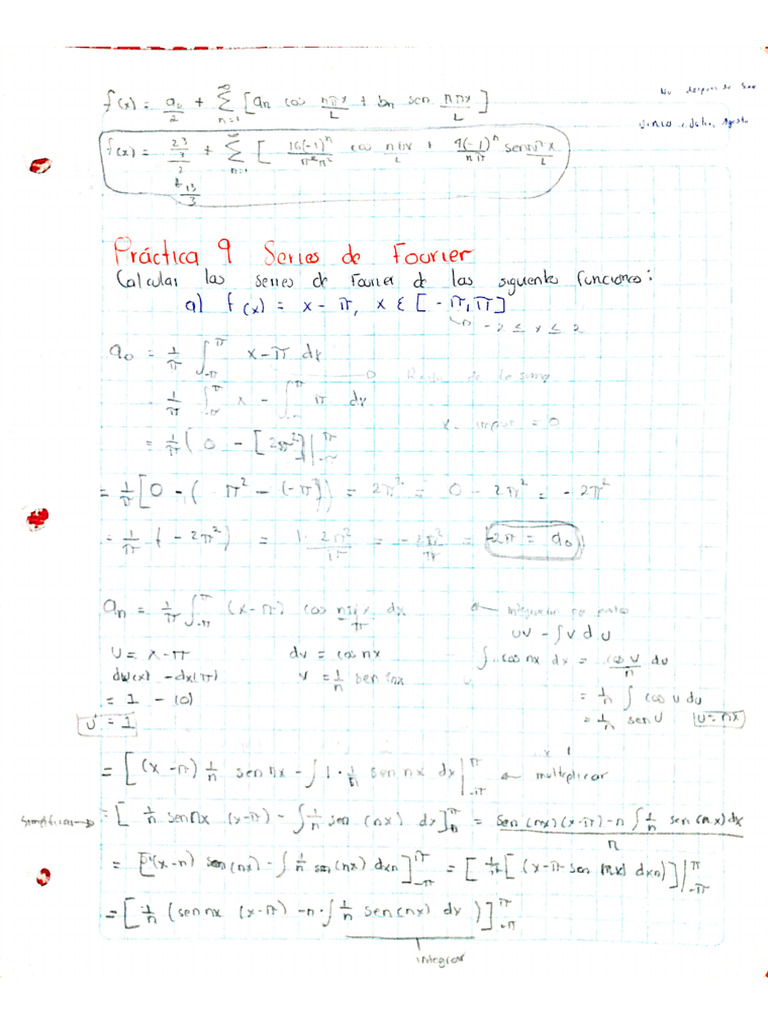 f(x) = a₀/2 + ∞Σn=1 [an cos nπx/L + bn sen nπx/L]
f(x) = 23/3/2 + ∞Σn=1 [ 16(-1)ⁿ/π²n² cos nπx/L + 4(-1)ⁿ/nπ sen nπx/L
13/3
Práctica 9 Series de Fourier
Calcular las series de Fourier de las siguiente funciones:
a) f(x) = x - π, x ε [-π, π]
-2 ≤ x ≤ 2
a₀ = 1/π ∫-π^π x - π dx
de la suma
1/π ∫-π^π x - ∫^π π dx
x - impar = 0
= 1/π ( 0 - [2π²]|-π^π
= 1/π [0 - ( π² - (-π])) = 2π² = 0 - 2π² = -2π²
= 1/π (-2π²) = 1 · 2π²/π = -2π²/π = -2π = a₀
an = 1/π ∫-π^π (x-π) cos nπx/π dx
uv - ∫v du
U = x - π dv = cos nx ∫ cos nx dx = cos u/n du
du(x) - dx(π) v = 1/n sen nx
= 1 - (0) = 1/n ∫ cos u du
u' = 1 = 1/n sen u u = nx
= [ (x-π) 1/n sen nx - ∫ 1 · 1/n sen nx dx |-π^π ← multiplicar
= [ 1/n sen nx (x-π) - ∫ 1/n sen (nx) dx ]^π = sen (nx)(x-π) - n ∫ 1/n sen (nx) dx / n
= [(x-π) sen (nx) - ∫ 1/n sen (nx) dxn ]-π^π = [ 1/n [ (x-π sen nx) dxn) ]|-π^π
= [ 1/n (sen nx (x-π) - n · ∫ 1/n sen (nx) dx )]-π^π
integrar